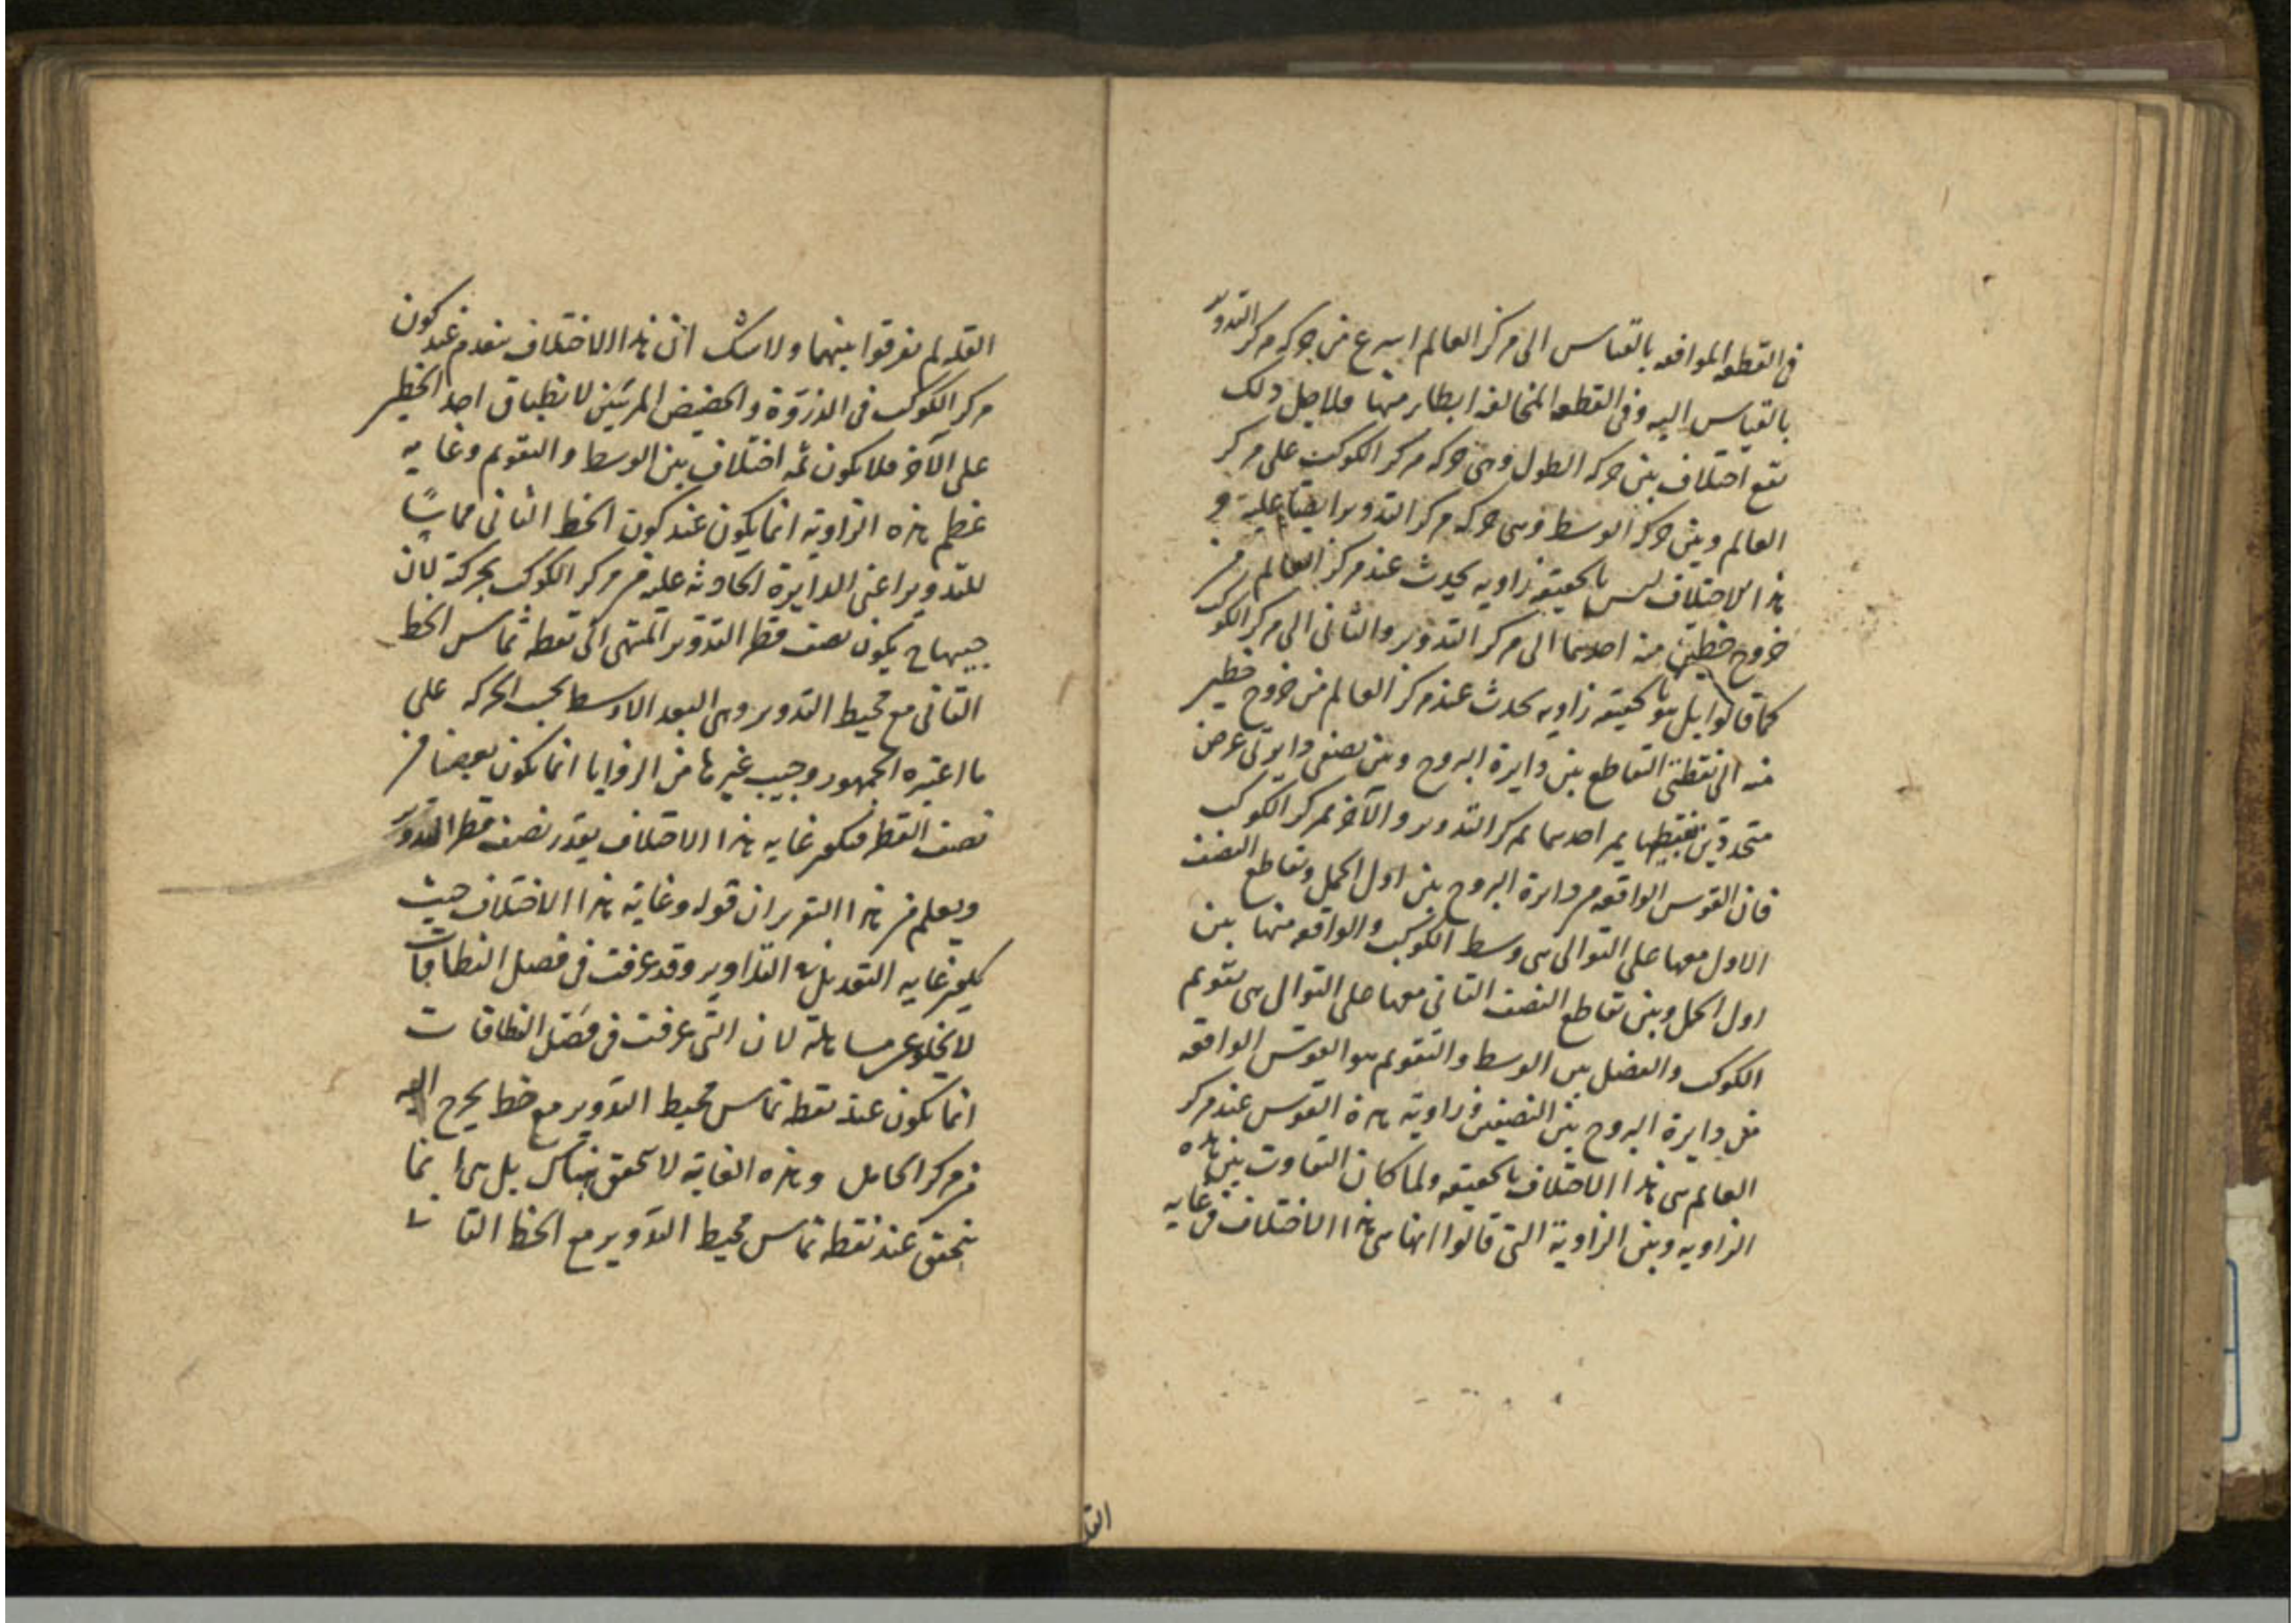 في القطعه الموافقه بالقياس الى مركز العالم اسرع من حركه مركز التدوير
بالقياس اليه وفي القطعه المخالفه ابطاء منها فلاجل ذلك
يقع اختلاف بين حركه الطول وهي حركه مركز الكوكب على مركز
العالم وبين حركه الوسط وهي حركه مركز التدوير ايضا عليه و
هذا الاختلاف ليس بالحقيقه زاويه يحدث عند مركز العالم من
خروج خطين منه احدهما الى مركز التدوير والثاني الى مركز الكوكب
كما قالوا بل هو بالحقيقه زاويه يحدث عند مركز العالم من خروج خطين
منه الى نقطتي التقاطع بين دايرة البروج وبين نصفي دايرتي عرض
متحدتين يمر احدهما بمركز التدوير والآخر بمركز الكوكب
فان القوس الواقعه من دايرة البروج بين اول الحمل وتقاطع النصف
الاول معها على التوالي هي وسط الكوكب والواقعه منها بين
اول الحمل وبين تقاطع النصف الثاني معها على التوالي هي تقويم
الكوكب والفضل بين الوسط والتقويم هو القوس الواقعه
من دايرة البروج بين النصفين وزاوية هذه القوس عند مركز
العالم هي هذا الاختلاف بالحقيقه ولما كان التفاوت بين هذه
الزاويه وبين الزاوية التي قالوا انها هي هذا الاختلاف في غايه
القله
القله لم يفرقوا بينهما ولا شك ان هذا الاختلاف ينعدم عند كون
مركز الكوكب في الذروة والحضيض المرئيين لانطباق احد الخطين
على الآخر فلا يكون ثمه اختلاف بين الوسط والتقويم وغايه
عظم هذه الزاوية انما يكون عند كون الخط الثاني مماسًا
للتدوير اعني الدايرة الحادثه عليه من مركز الكوكب بحركته لان
جيبها ح يكون نصف قطر التدوير المنتهي الى نقطه تماس الخط
الثاني مع محيط التدوير وهي البعد الاوسط بحسب الحركه على
ما اعتبره الجمهور وجيب غيرها من الزوايا انما يكون بعضا من
نصف القطر فيكون غايه هذا الاختلاف بقدر نصف قطر التدوير
ويعلم من هذا التقرير ان قوله وغاية هذا الاختلاف حيث
يكون غايه التعديل في التداوير وقد عرفت في فصل النطاقات
لا يخلو عن مساهلة لان التي عرفت في فصل النطاقات
انما يكون عند نقطه تماس محيط التدوير مع خط يخرج اليه
من مركز الحامل وهذه الغاية لا تتحقق هناك بل هي انما
يتحقق عند نقطه تماس محيط التدوير مع الخط الثا